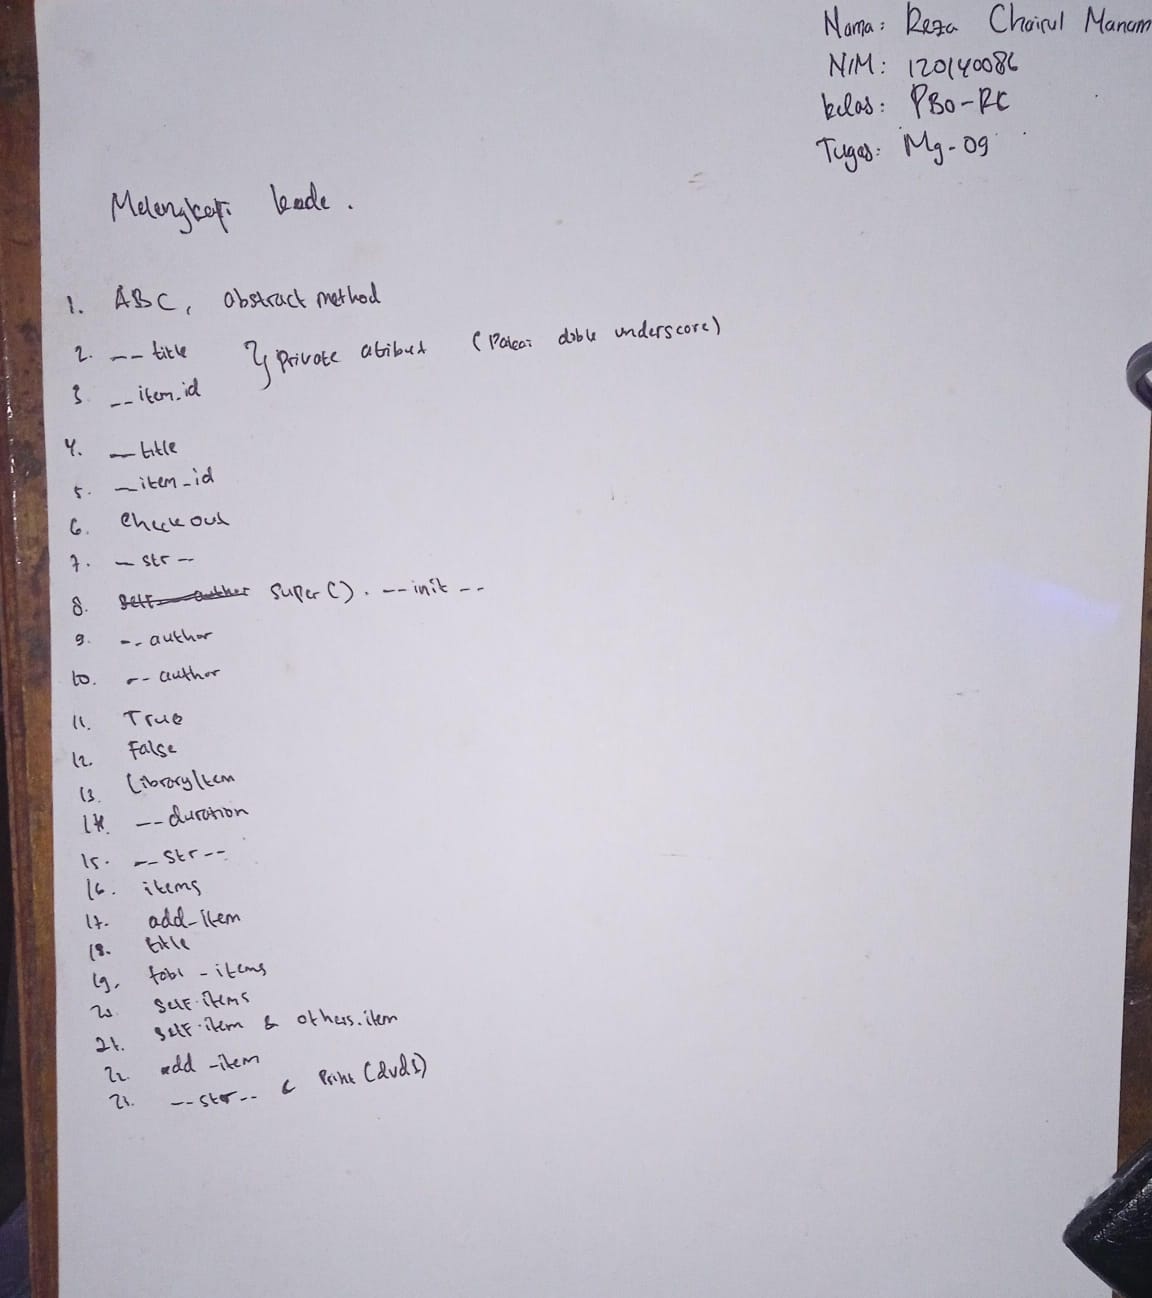 Nama: Reza Chairul Manam
NIM: 120140086
kelas: PBO-RC
Tugas: Mg-09
Melengkapi kode.
1. ABC, abstract method
2. __ title } Private atibut (Pakai doble underscore)
3. __ item_id
4. _ title
5. _item_id
6. Check out
7. _ str --
8. Super(). --init --
9. -- author
10. -- author
11. True
12. False
13. LibraryItem
14. -- duration
15. -- str --
16. items
17. add-item
18. title
19. - items
20. self.items
21. self.item & others.item
22. add -item
23. --str-- Print (dvd1)